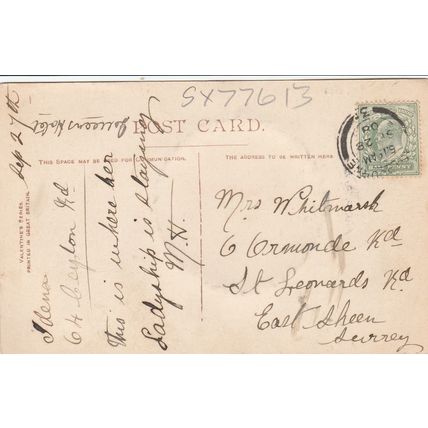 SX77613
POST CARD.
THIS SPACE MAY BE USED FOR COMMUNICATION.
THE ADDRESS TO BE WRITTEN HERE.
VALENTINE'S SERIES
PRINTED IN GREAT BRITAIN.
Sep 27th
64 Rd
This is where her
Ladyship is staying
M.H.
Mrs Whitmarsh
6 Ormonde Rd
St Leonards Rd.
East Sheen
Surrey